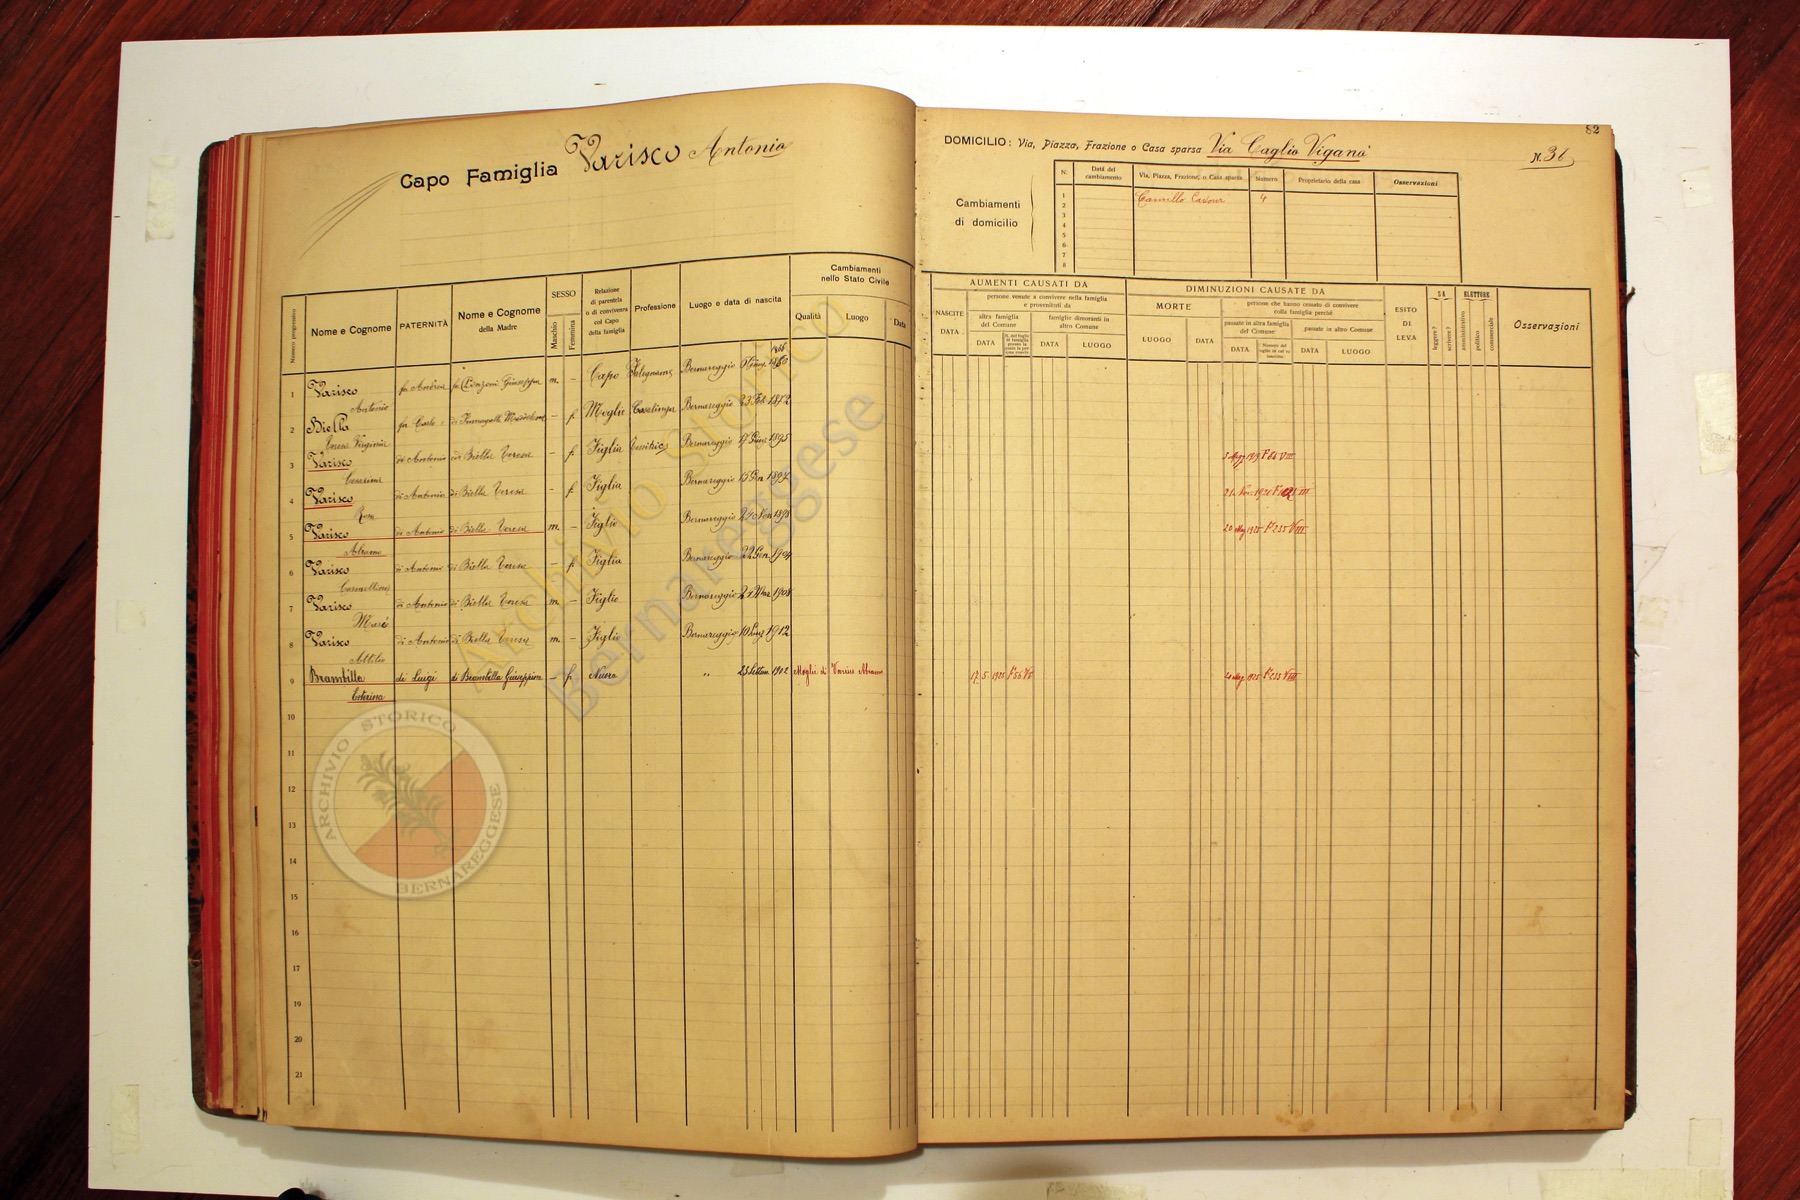 Capo Famiglia Varisco Antonio
82
DOMICILIO: Via, Piazza, Frazione o Casa sparsa Via Caglio Viganò N. 36
Cambiamenti di domicilio
N. Data del cambiamento Via, Piazza, Frazione, o Casa sparsa Numero Proprietario della casa Osservazioni
1 Camillo Cavour 4
2
3
4
5
6
7
8
Numero progressivo
Nome e Cognome
PATERNITÀ
Nome e Cognome della Madre
SESSO
Maschio Femmina
Relazione di parentela o di convivenza col Capo della famiglia
Professione
Luogo e data di nascita
Cambiamenti nello Stato Civile
Qualità Luogo Data
AUMENTI CAUSATI DA
NASCITE DATA
persone venute a convivere nella famiglia e provenienti da
altra famiglia del Comune
DATA
famiglie dimoranti in altro Comune
DATA LUOGO
DIMINUZIONI CAUSATE DA
MORTE
LUOGO DATA
persone che hanno cessato di convivere colla famiglia perchè
passate in altra famiglia del Comune
DATA
passate in altro Comune
DATA LUOGO
ESITO DI LEVA
SA
leggere? scrivere?
ELETTORE
amministrativo politico commerciale
Osservazioni
1868
1 Varisco fu Andrea m. – Capo Falegname Bernareggio
Antonio
2 Biella fu Carlo – f. Moglie Casalinga Bernareggio 23 Feb. 1872
Teresa Virginia
3 Varisco di Antonio di Biella Teresa – f. Figlia Bernareggio 1895
Cesarina
4 Varisco di Antonio di Biella Teresa – f. Figlia Bernareggio 15 Gen 1897
Rosa
5 Varisco di Antonio di Biella Teresa m. – Figlio Bernareggio Nov 1898 20 Mag 1925 F° 235 VIII
Abramo
6 Varisco di Antonio di Biella Teresa – f. Figlia Bernareggio 22 Gen 1904
7 Varisco di Antonio di Biella Teresa m. – Figlio Bernareggio 1908
8 Varisco di Antonio di Biella Teresa m. – Figlio Bernareggio 10 1912
Attilio
9 Brambilla di Luigi di Brambilla Giuseppina – f. Nuora " 1902 Moglie di Varisco Abramo 17. 5. 1925 F° 56 20 Mag 1925 F° 235 VIII
Esterina
10
11
12
13
14
15
16
17
18
19
20
21
Archivio Storico
Bernareggese
ARCHIVIO STORICO
BERNAREGGESE